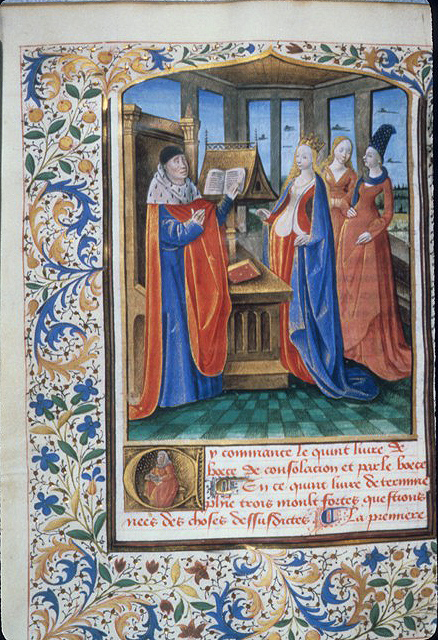 Cy commance le quint liure de
boece de consolacion et parle boece
En ce quint liure determine
phie trois moult fortes questions
nees des choses dessusdictes. La premiere